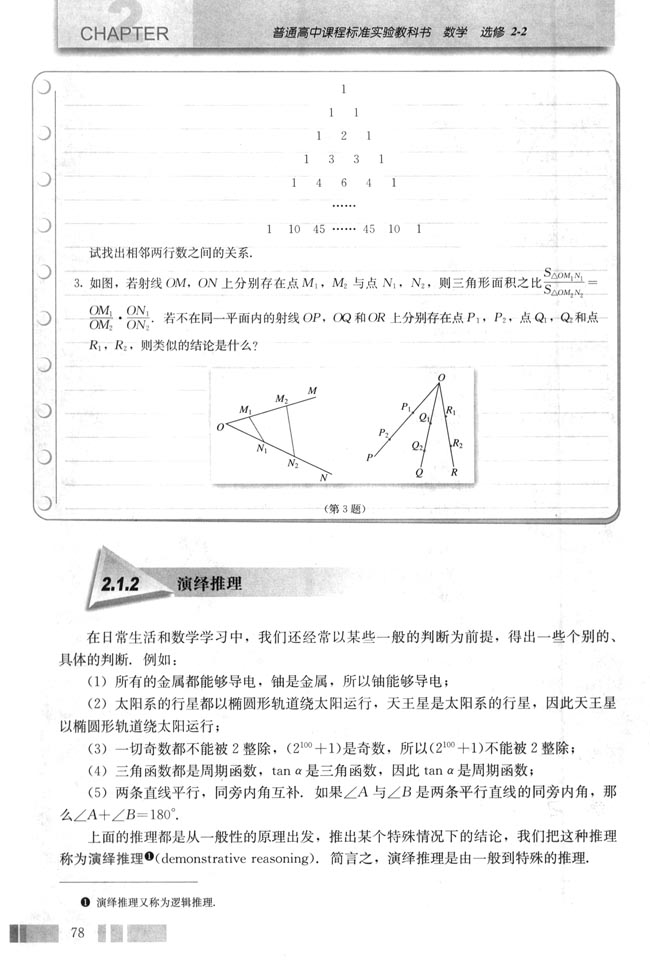 2
CHAPTER
普通高中课程标准实验教科书 数学 选修 2-2
1
1 1
1 2 1
1 3 3 1
1 4 6 4 1
……
1 10 45 …… 45 10 1
试找出相邻两行数之间的关系.
3. 如图，若射线 OM，ON 上分别存在点 M₁，M₂ 与点 N₁，N₂，则三角形面积之比 S△OM₁N₁/S△OM₂N₂ =
OM₁/OM₂ · ON₁/ON₂. 若不在同一平面内的射线 OP，OQ 和 OR 上分别存在点 P₁，P₂，点 Q₁，Q₂ 和点
R₁，R₂，则类似的结论是什么？
O M₁ M₂ M N₁ N₂ N
O P₁ P₂ P Q₁ Q₂ Q R₁ R₂ R
（第 3 题）
2.1.2 演绎推理
在日常生活和数学学习中，我们还经常以某些一般的判断为前提，得出一些个别的、
具体的判断. 例如：
（1）所有的金属都能够导电，铀是金属，所以铀能够导电；
（2）太阳系的行星都以椭圆形轨道绕太阳运行，天王星是太阳系的行星，因此天王星
以椭圆形轨道绕太阳运行；
（3）一切奇数都不能被 2 整除，(2¹⁰⁰+1)是奇数，所以(2¹⁰⁰+1)不能被 2 整除；
（4）三角函数都是周期函数，tan α 是三角函数，因此 tan α 是周期函数；
（5）两条直线平行，同旁内角互补. 如果∠A 与∠B 是两条平行直线的同旁内角，那
么∠A+∠B=180°.
上面的推理都是从一般性的原理出发，推出某个特殊情况下的结论，我们把这种推理
称为演绎推理❶(demonstrative reasoning). 简言之，演绎推理是由一般到特殊的推理.
❶ 演绎推理又称为逻辑推理.
78